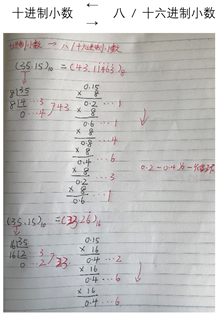 十进制小数 ⇄ 八 / 十六进制小数
十进制小数 → 八/十六进制小数
(35.15)₁₀ = (43.11463)₈
8|35
8|4 …3
0 …4
43
0.15
× 8
0.2 …1
× 8
0.6 …1
× 8
0.8 …4
× 8
0.4 …6
× 8
0.2 …3
× 8
0.6 …1
0.2-0.4
(35.15)₁₀ = (23.26)₁₆
16|35
16|2 …3
0 2
23
0.15
× 16
0.4 …2
× 16
0.4 …6
× 16
0.4 …6